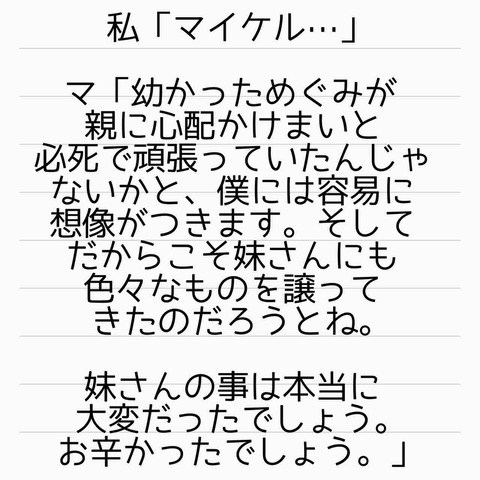 私「マイケル…」
マ「幼かっためぐみが
親に心配かけまいと
必死で頑張っていたんじゃ
ないかと、僕には容易に
想像がつきます。そして
だからこそ妹さんにも
色々なものを譲って
きたのだろうとね。
妹さんの事は本当に
大変だったでしょう。
お辛かったでしょう。」